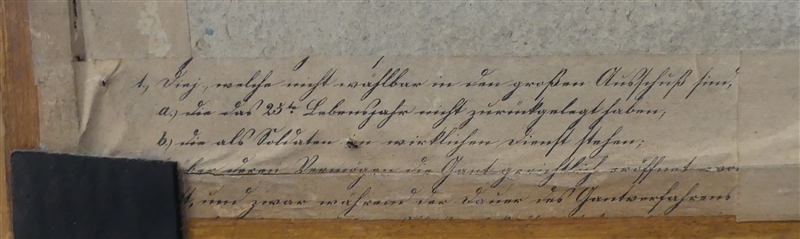 1., Diej., welche nicht wählbar in den großen Ausschuß sind,
a.) die das 25te Lebensjahr nicht zurückgelegt haben,
b.) die als Soldaten in wirklichen Dienst stehen;
ber deren Vermögen die Gant gerichtlich eröffnet wor
t, und zwar während der Dauer des Gantverfahrens